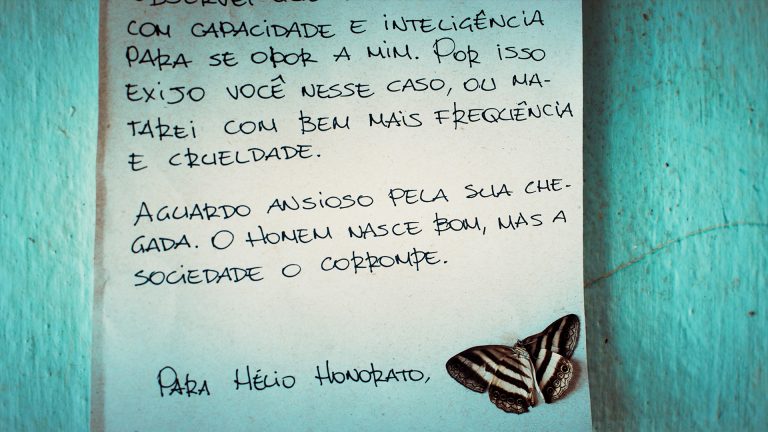 COM CAPACIDADE E INTELIGÊNCIA
PARA SE OPOR A MIM. POR ISSO
EXIJO VOCÊ NESSE CASO, OU MA-
TAREI COM BEM MAIS FREQUÊNCIA
E CRUELDADE.
AGUARDO ANSIOSO PELA SUA CHE-
GADA. O HOMEM NASCE BOM, MAS A
SOCIEDADE O CORROMPE.
PARA HÉLIO HONORATO,